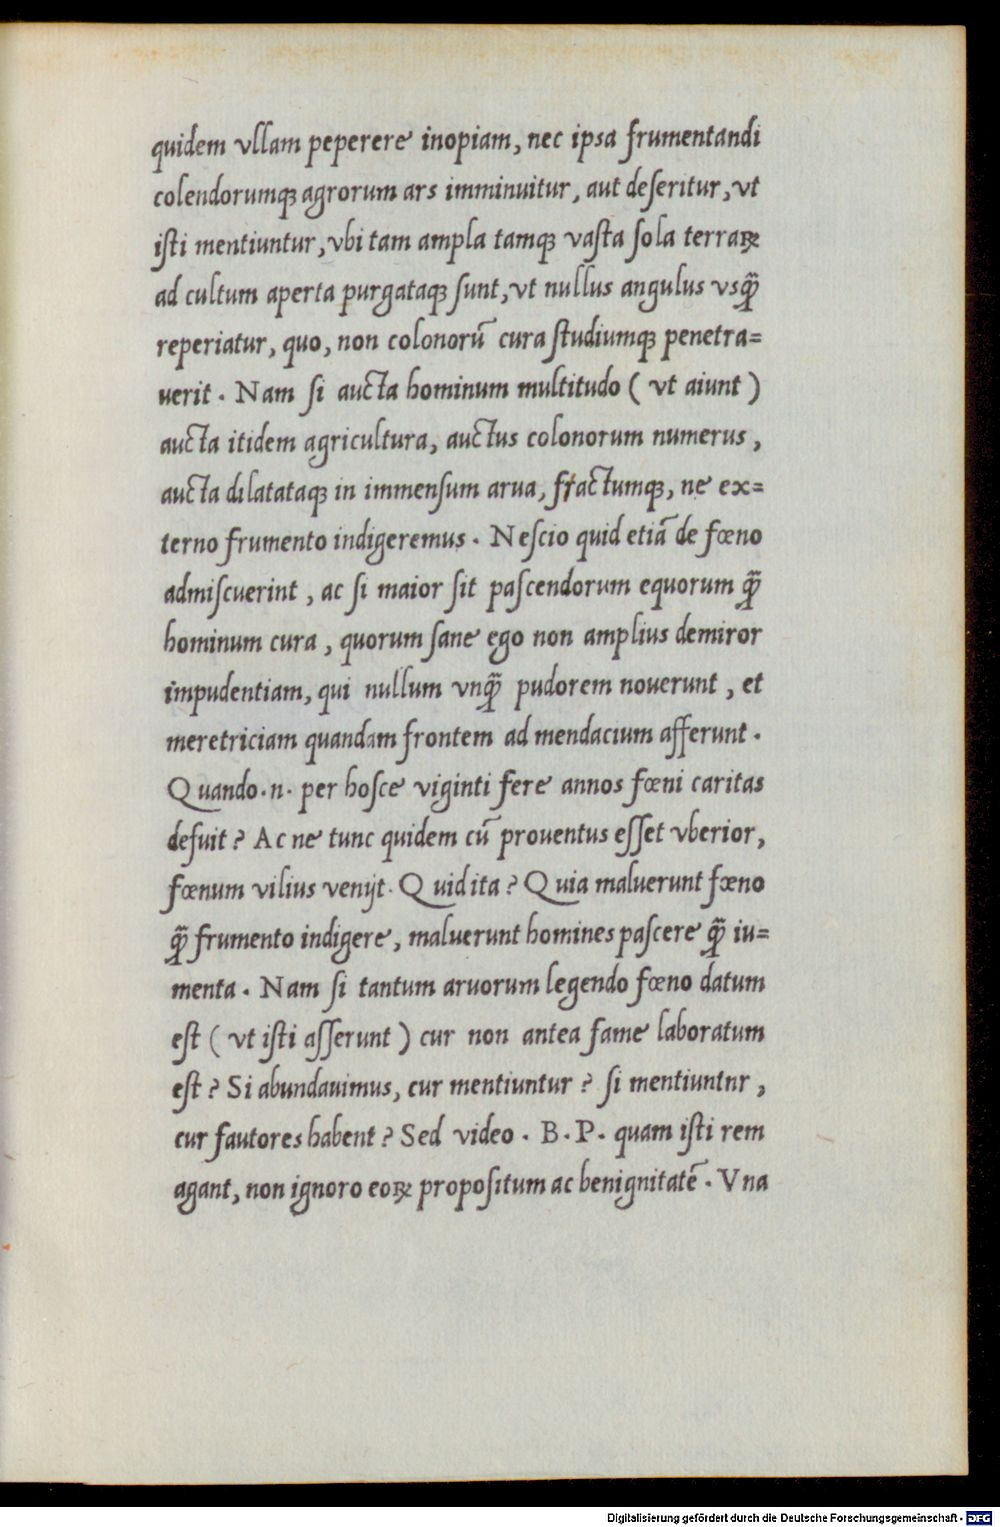 quidem vllam peperere inopiam, nec ipsa frumentandi
colendorumqꝫ agrorum ars imminuitur, aut deſeritur, vt
iſti mentiuntur, vbi tam ampla tamqꝫ vaſta ſola terraꝝ
ad cultum aperta purgataqꝫ ſunt, vt nullus angulus vsꝙ̃
reperiatur, quo, non colonorū cura ſtudiumqꝫ penetra=
uerit . Nam ſi aucta hominum multitudo ( vt aiunt )
aucta itidem agricultura, auctus colonorum numerus ,
aucta dilatataqꝫ in immenſum arua, fractumqꝫ, ne ex=
terno frumento indigeremus . Neſcio quid etiā de fœno
admiſcuerint , ac ſi maior ſit paſcendorum equorum ꝙ̃
hominum cura , quorum ſane ego non amplius demiror
impudentiam, qui nullum vnꝙ̃ pudorem nouerunt , et
meretriciam quandam frontem ad mendacium afferunt .
Quando .n. per hoſce viginti fere annos fœni caritas
defuit ? Ac ne tunc quidem cū prouentus eſſet vberior,
fœnum vilius venijt . Quid ita ? Quia maluerunt fœno
ꝙ̃ frumento indigere , maluerunt homines paſcere ꝙ̃ iu=
menta . Nam ſi tantum aruorum legendo fœno datum
eſt ( vt iſti aſſerunt ) cur non antea fame laboratum
eſt ? Si abundauimus, cur mentiuntur ? ſi mentiuntnr ,
cur fautores habent ? Sed video . B . P . quam iſti rem
agant, non ignoro eoꝝ propoſitum ac benignitatē . Vna
Digitalisierung gefördert durch die Deutsche Forschungsgemeinschaft - DFG